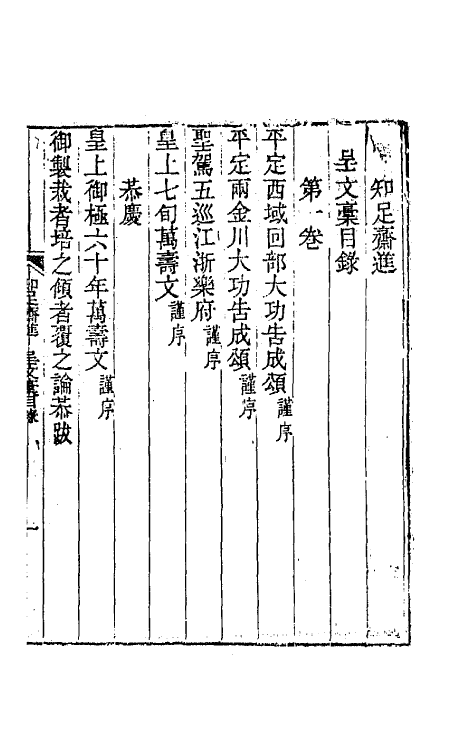 知足齋進
呈文稾目錄
第一卷
平定西域回部大功告成頌謹序
平定兩金川大功告成頌謹序
聖駕五巡江浙樂府謹序
皇上七旬萬壽文謹序
恭慶
皇上御極六十年萬壽文謹序
御製栽者培之傾者覆之論恭跋
知足齋進 呈文稾目錄 一